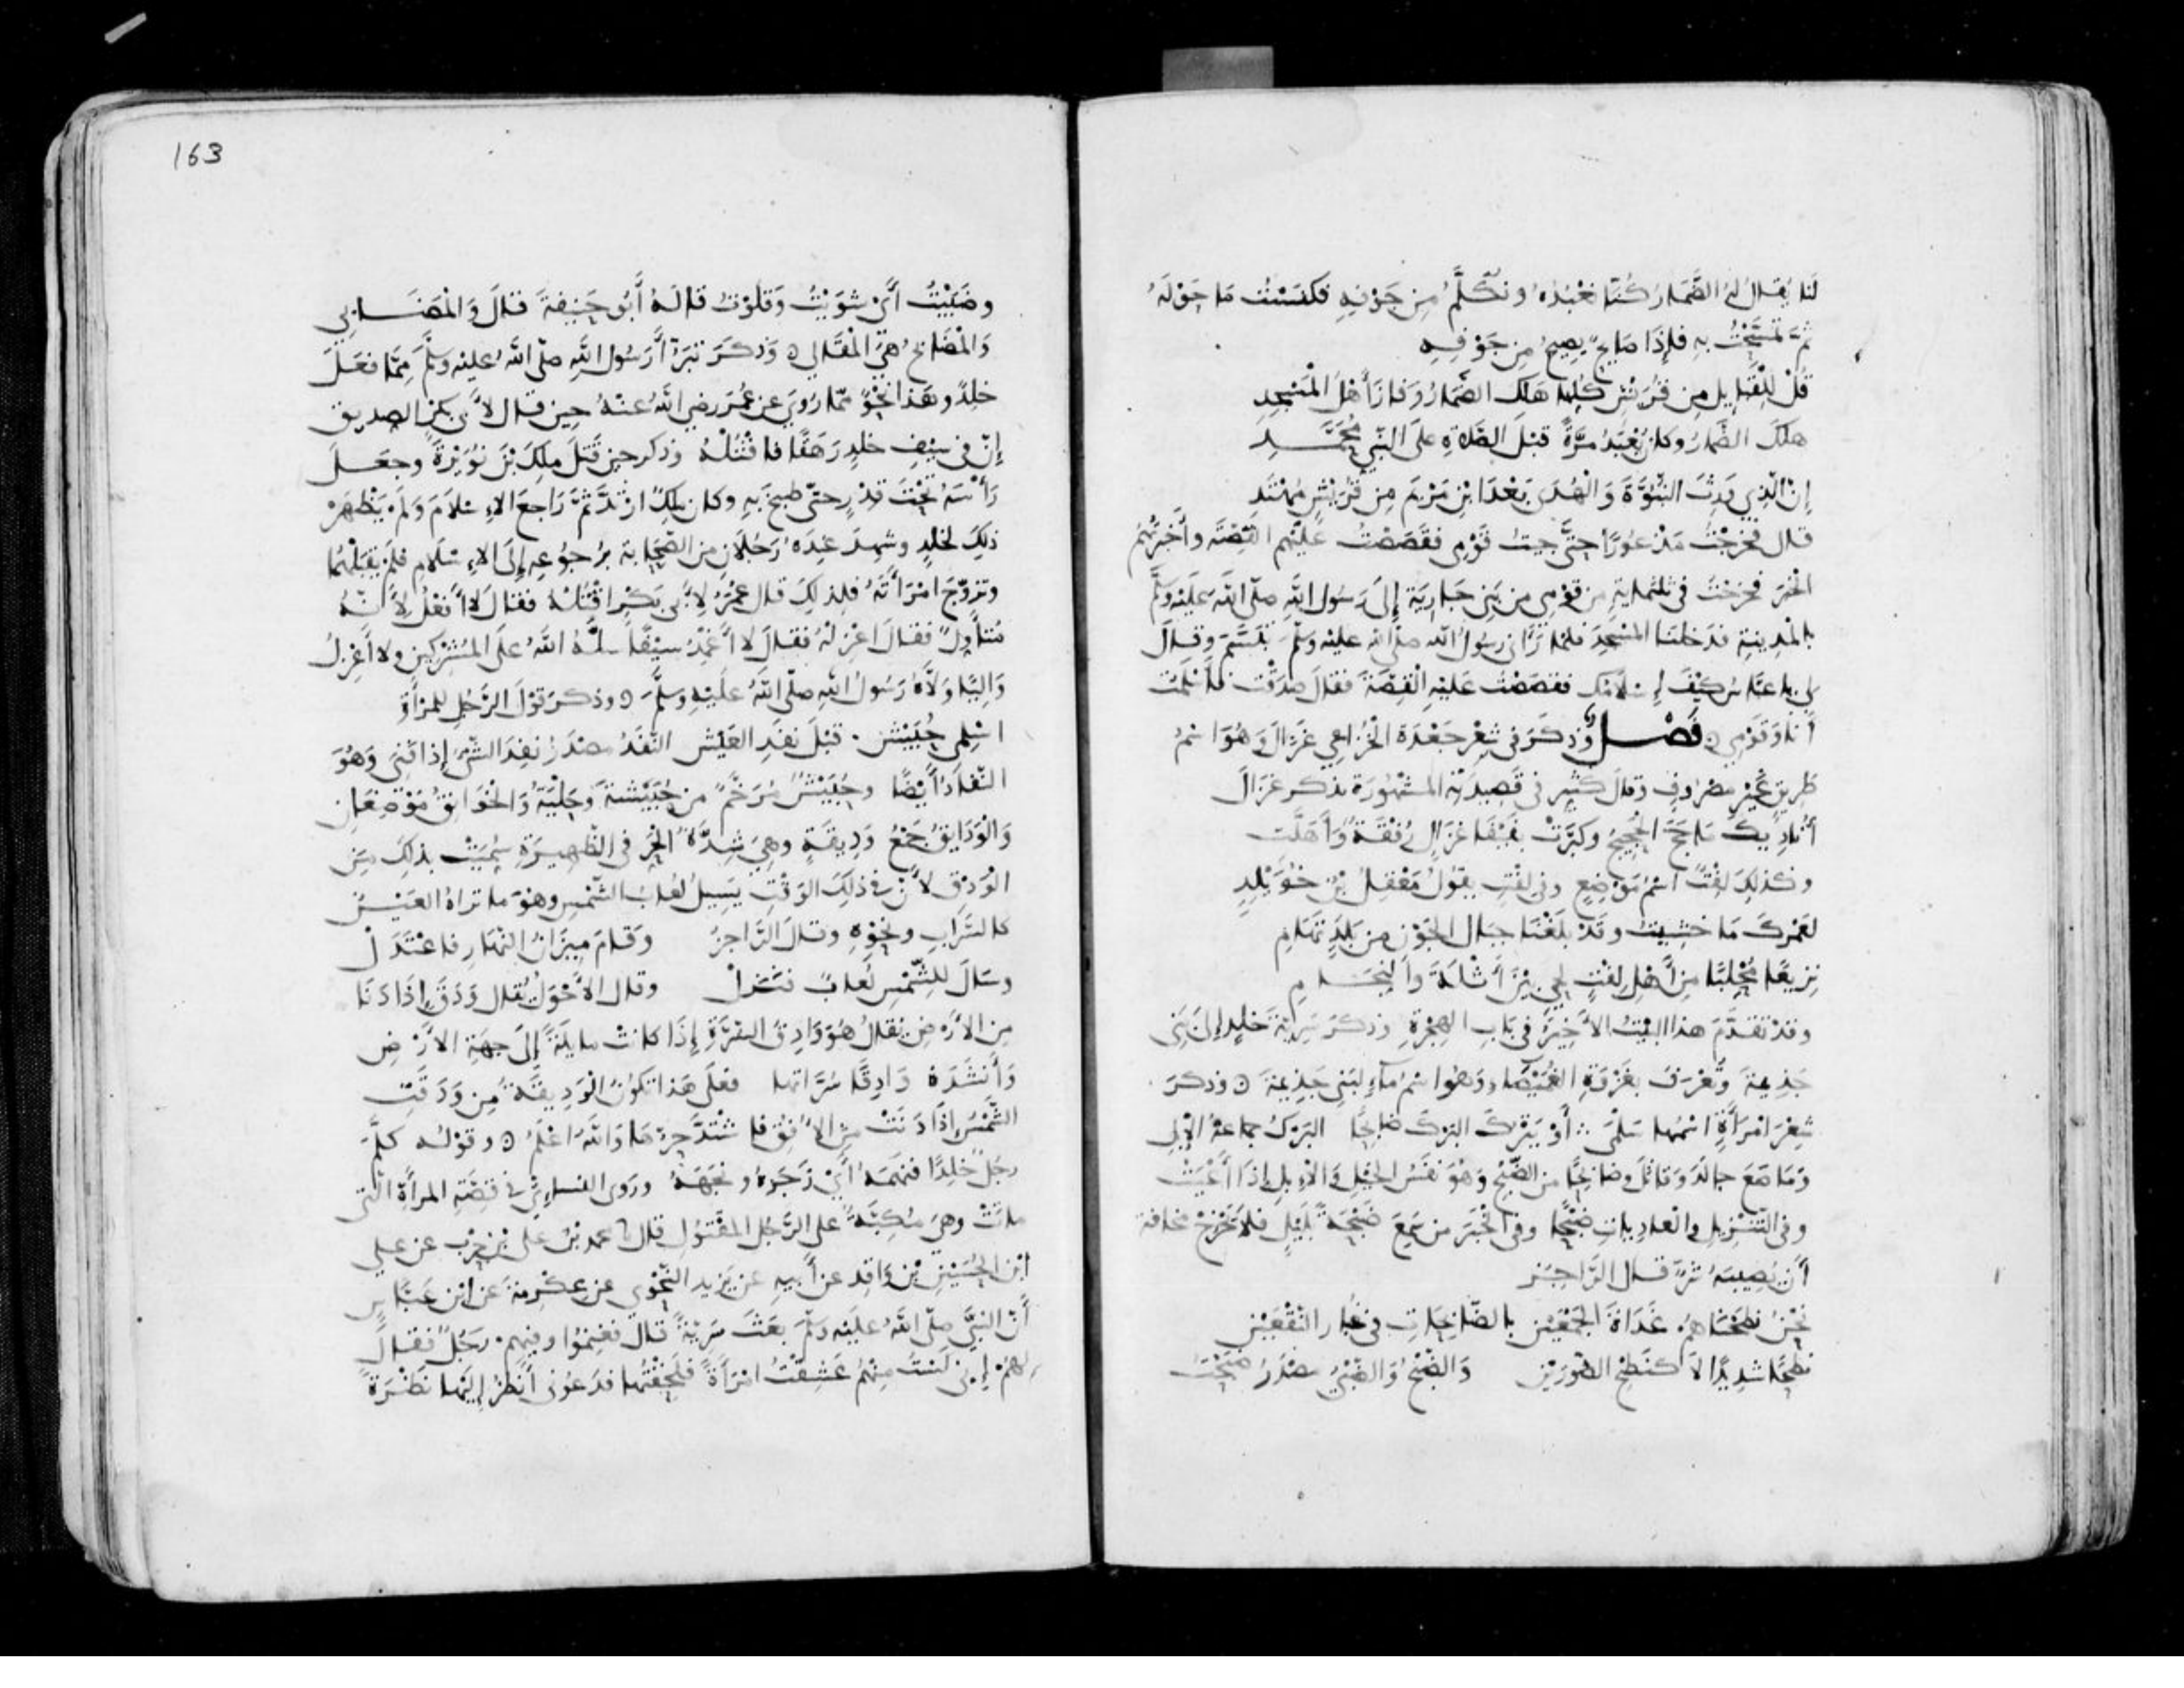 لَنا يُقال لهُ الضَّمار كُنّا نَعْبُدُهُ ونُكَلَّمُ مِن جَوْفِهِ فكنَسْتُ مَا حَوْلهُ
ثمّ تمسَّحْتُ بهِ فإِذَا صَايحٌ يصِيحُ مِن جَوْفِهِ
قُلْ لِلْقَبَايِلِ مِن قُرَيْشٍ كُلِّها هَلك الضّمَارُ وَفازَ أَهْلُ الْمَسْجِدِ
هلَكَ الضَّمارُ وكان يُعْبَدُ مرَّةً قبْلَ الصَّلاةِ على النّبيِّ مُحَمَّدِ
إنّ الّذِي وَرِثَ النّبُوَّةَ وَالْهُدَى بَعْدَ ابْنِ مَرْيَمَ مِن قُرَيْشٍ مُهْتَدِ
قال فخرجْتُ مَذْعُورًا حتَّى جيتُ قَوْمِي فقَصَصْتُ عَليْهم القِصّة وأَخبَرْتُهُمُ
الخبَرَ فخرَجْتُ في ثلثمايةٍ من قوْمِي من بَنِي حَارِثة إلى رَسُولِ اللّهِ صلّى اللّه عَليْهِ وسلّم
بالمدِينةِ فدَخلنا المسْجِدَ فلمّا رَآني رسُولُ اللّه صلّى اللّه عليْه وسلّم تبَسَّمَ وقالَ
لِي يا عبّاسُ كيْفَ إسْلامُك فقصَصْتُ عَليْهِ الْقِصّةَ فقال صدَقْت فأَسْلمْتُ
أَنا وَقوْمِي ه فَصْل وَذكَرَ في شِعْرِ جَعْدَة الخُزاعِي غزَالَ وَهُوَ اسْمُ
طَرِيقٍ غَيْرِ مصْرُوفٍ وقالَ كثيّر في قصِيدَتِهِ المشْهُورَة يذكر غزالَ
أُنادِيكَ مَا حَجَّ الحَجِيجُ وكبَّرَتْ بِفَيْفَا غزَالٍ رُفْقَةٌ وَأَهَلَّت
وكذلِكَ لِفْتٌ اسْمُ مَوْضِعٍ وفي لِفْتٍ يقُولُ مَعْقِلُ بْنُ خُوَيْلِدٍ
لعَمْرُكَ مَا خشِيتُ وقَدْ بلَغْنا جبال الجَوْزِ مِن بلَدٍ تهَامِ
نزِيعًا مُحْلِبًا مِن أَهْلِ لِفْتٍ لِحَيٍّ بيْنَ أَثْلةَ والنِّجَـامِ
وقدْ تقدَّمَ هذا البيْتُ الأَخِيرُ في بَابِ الهِجْرَةِ وذكرَ سرِيّةَ خلِدٍ إلى بَنِي
جَذِيمةَ وتُعْرَفُ بغزْوَةِ الغُمَيْصَاء وَهُوَ اسْمُ مَآءٍ لبَنِي جَذِيمَةَ ه وذكرَ
شِعْرَ امْرَأَةٍ اسْمُها سَلْمى ∴ أَوْ يَتْرُكَ البَرْكَ ضَابِحًا البَرْكُ جماعةُ الإِبِلِ
وَمَاصَعَ جالَدَ وَقاتَلَ وضابِحًا من الضَّبْحِ وَهْوَ نفَسُ الخَيْلِ وَالإِبِلِ إذا أَعْيَتْ
وفي التّنْزِيلِ والعادِياتِ ضَبْحًا وفي الخبَرِ من سَمِعَ ضَبْحَةً بلَيْلٍ فلا يَخْرُجْ مَخافَةَ
أَن يُصِيبَهُ شرٌّ قال الرّاجِز
نحْنُ نطحْناهُمْ غَدَاةَ الجَمْعَيْن بالضّابِحاتِ في غُبار النّقْعَيْن
نَطْحًا شدِيدًا لا كنَطْحِ الصُّورَيْن وَالضَّبْحُ وَالضَّبْيُ مصْدَرُ ضَبَحْتُ
163
وضَبَيْتُ أَيْ شَوَيْتُ وَقلَوْتُ قالهُ أَبُو حَنِيفةَ قالَ وَالْمَضَـابي
وَالْمَضَابحُ هيَ الْمَقَالي ه وَذكَرَ تبرُّأَ رَسُولِ اللّهِ صلّى اللّهُ عليْه وسلَّمَ مِمّا فعَلَ
خلِدٌ وهَذا نحْوٌ ممّا رُوِيَ عن عُمَرَ رضي اللّهُ عنْهُ حِين قال لأَبي بكرٍ الصديق
إنّ في سَيْفِ خلِدٍ رَهَقًا فاقْتُلْهُ وذكر حِين قَتَلَ ملِكَ بْنَ نُوَيْرَةَ وجعَلَ
رَأْسَهُ تَحْتَ قِدْرٍ حتّى طبِخَ بهِ وكان ملِكٌ ارْتَدَّ ثمَّ رَاجعَ الإِسْلامَ وَلَمْ يَظْهَرْ
ذلِكَ لخلِدٍ وشهِدَ عِنْدَهُ رَجُلان من الصّحَابة برُجُوعِهِ إلى الإِسْلامِ فلمْ يقبَلْهُما
وتزوّجَ امْرَأَتَهُ فلِذلِكَ قال عُمَرُ لأَبي بَكْرٍ اقْتُلْهُ فقال لا أَفعَلُ لأَنّهُ
مُتأَوِّلٌ فقال اعْزِلْهُ فقالَ لا أَغْمِدُ سيْفًا سلَّهُ اللّهُ على المشْرِكِين ولا أَعْزِلُ
وَالِيًا وَلاّهُ رَسُولُ اللّهِ صلّى اللّهُ عليْهِ وسَلَّمَ ه وذكرَ قوْلَ الرَّجُلِ للمرْأَةِ
اسْلِمي حُبَيْش . قبْلَ نفَدِ العَيْش النّفَدُ مصْدَرُ نفِدَ الشّيْءُ إذا فَنِيَ وَهُوَ
النّفادُ أَيْضًا وحُبَيْشُ مُرَخَّمٌ من حُبَيْشةَ وحَلْيَةُ والخوَانِقُ مَوْضِعَان
وَالْوَدَايِقُ جَمْعُ وَدِيقةٍ وهِيَ شِدَّةُ الحَرِّ في الظّهِيرَةِ سُمِّيَتْ بذلِكَ مِنَ
الوَدْقِ لأَنّ في ذلِكَ الوَقْتِ يَسِيلُ لُعابُ الشّمْسِ وهوَ ما تراهُ العَيْنُ
كالسَّرَابِ ونحْوِهِ وقالَ الرّاجزُ وَقامَ مِيزَانُ النّهارِ فاعْتَدَلْ
وسَالَ للشّمْسِ لُعابٌ فنَزَلْ وقال الأَحْوَلُ يُقال وَدَقَ إذَا دَنَا
من الأَرْضِ يُقالُ هُوَ وَادِقُ السُّرّةِ إذَا كانتْ مايلَةً إلى جهَةِ الأَرْضِ
وَأَنشَدَهُ وَادِقًا سُرَّاتها فعَلى هَذا تكُونُ الْوَدِيقَةُ مِن وَدَقَتِ
الشَّمْسُ إذَا دَنَتْ من الأُفُقِ فاشْتدَّ حرُّهَا وَاللّهُ أَعْلَمُ ه وقوْله كلَّمَ
رجُلٌ خلِدًا فنَهَمَهُ أَيْ زَجَرَهُ ونَجَهَهُ ورَوَى النساءِيّ في قصّةِ المرأَةِ الّتي
ماتَتْ وهيَ مُكِبَّةٌ على الرَّجُلِ المقْتُولِ قال محمد بْنُ علي بْن حَرْب عن علي
ابْن الحُسَيْنِ بْن وَاقِدٍ عن أَبيهِ عن يَزِيد النَّحْوِي عن عِكْرِمة عَن ابْن عَبّاس
أَنّ النّبيَّ صلّى اللّهُ علَيْه وسلّم بعَثَ سَرِيّةً قال فغَنِمُوا وفيهِم رجُلٌ فقالَ
لهُمْ إنّي لَسْتُ مِنْهُمْ عَشِقْتُ امْرَأَةً فلَحِقْتُها فدَعُوني أَنظُرْ إليْها نَظْرَةً